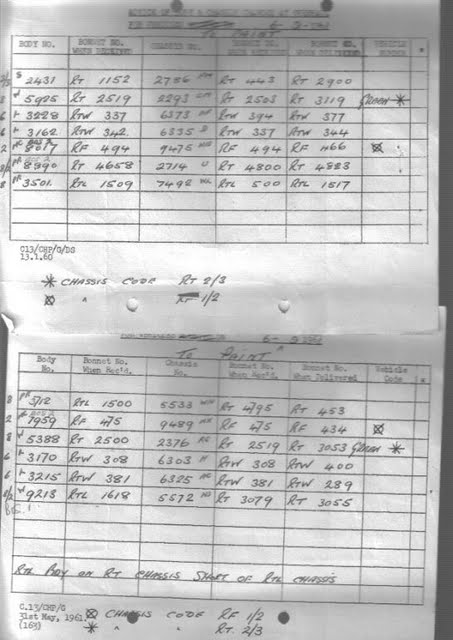 NOTICE OF BODY & CHASSIS CHANGES AT OVERHAUL
TO PAINT
BODY NO. BONNET NO. WHEN RECEIVED CHASSIS NO. BONNET NO. WHEN RECEIVED BONNET NO. WHEN DELIVERED VEHICLE NUMBER *
2431 RT 1152 2756 RT 443 RT 2900
5925 RT 2519 2293 RT 2503 RT 3119 GREEN *
3228 RTW 337 6373 RTW 394 RTW 377
3162 RTW 342 6335 RTW 337 RTW 344
8017 RF 494 9475 RF 494 RF 466
8990 RT 4658 2714 RT 4800 RT 4823
3501 RTL 1509 7492 RTL 500 RTL 1517
C13/CHP/G/DS
13.1.60
* CHASSIS CODE RT 2/3
" RF 1/2
TO PAINT
Body No. Bonnet No. When Rec'd. Chassis No. Bonnet No. When Rec'd. Bonnet No. When Delivered Vehicle Code *
RTL 1500 5533 RT 4795 RT 453
7959 RF 475 9489 RF 475 RF 434
5388 RT 2500 2376 RT 2519 RT 3053 GREEN *
3170 RTW 308 6303 RTW 308 RTW 400
3215 RTW 381 6325 RTW 381 RTW 289
9213 RTL 1618 5572 RT 3079 RT 3055
RTL BODY ON RT CHASSIS SHORT OF RTL CHASSIS
C.13/CHP/G
31st May, 1961
(163)
CHASSIS CODE RF 1/2
* " " RT. 2/3